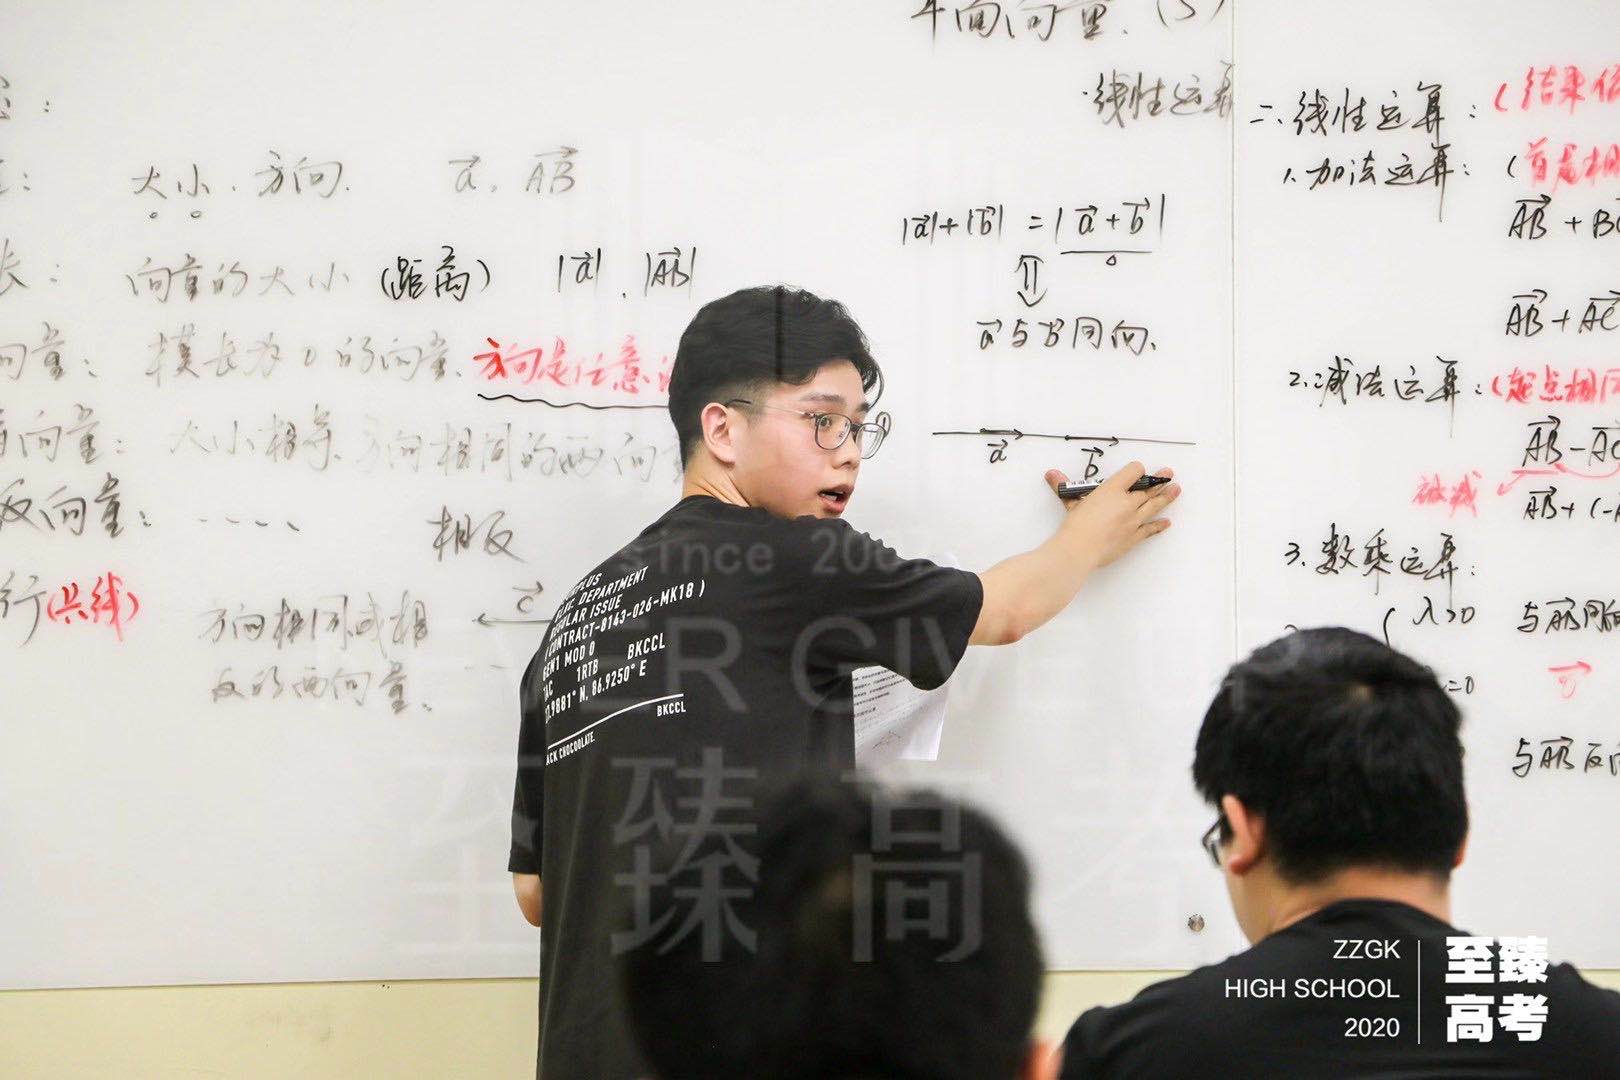 平面向量.(5)
·线性运算
大小.方向. a⃗. AB⃗
长: 向量的大小(距离) |a⃗|.|AB⃗|
向量: 模长为0的向量. 方向是任意
向量: 大小相等.方向相同的两向
反向量: .... 相反
行(共线) 方向相同或相
反的两向量.
c⃗
|a⃗|+|b⃗| = |a⃗+b⃗|
⇓
a⃗与b⃗同向.
a⃗ b⃗
二.线性运算: (结果
1.加法运算: (首尾相
AB⃗ + B
AB⃗ + AC⃗
2.减法运算: (起点相同
AB⃗ - AC
被减
AB⃗ + (-A
3.数乘运算:
λ>0 与AB⃗同向
=0 0⃗
与AB⃗反向
PLUS
DEPARTMENT
REGULAR ISSUE
CONTRACT-8143-026-MK18 )
GEN1 MOD 0 BKCCL
TAC 1RTB
.9881° N. 86.9250° E
BKCCL
ACK CHOCOOLATE.
since 200
NEVER GIVE UP
至臻高考
ZZGK
HIGH SCHOOL
2020
至臻
高考